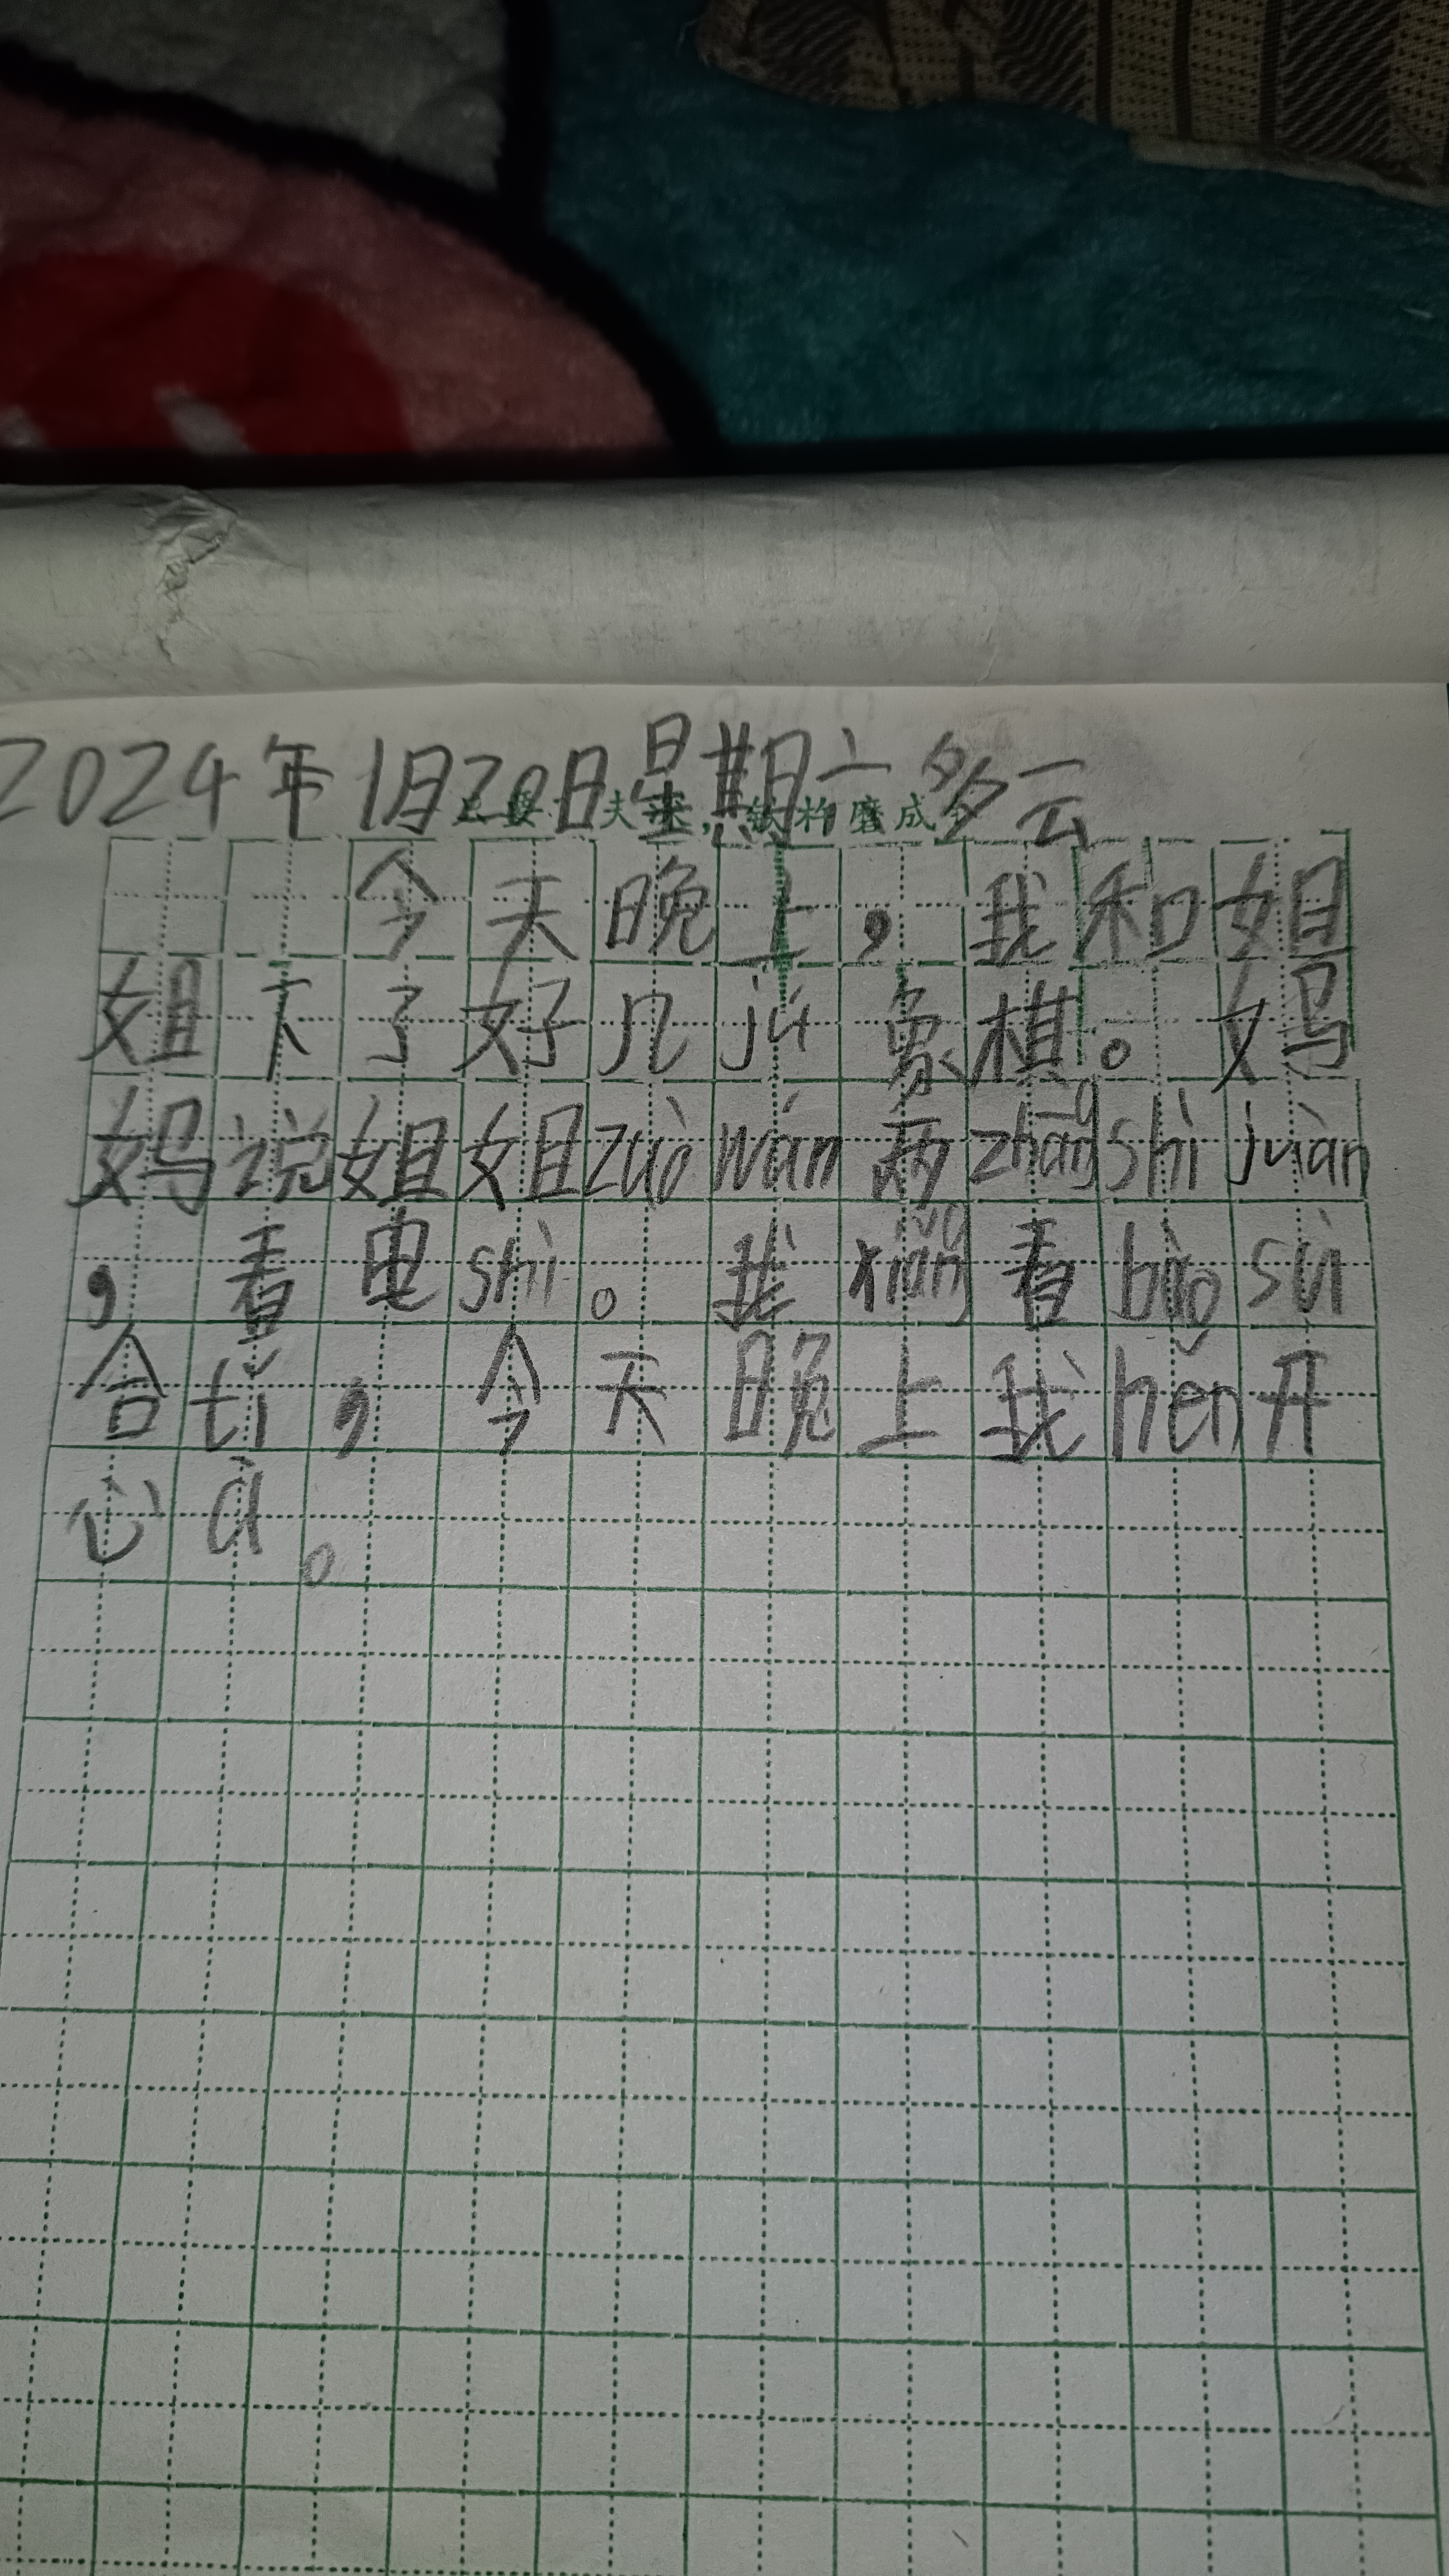 2024年1月20日星期六多云
只要 夫深,铁杵磨成
今天晚上,我和姐
姐下了好几jú象棋。妈
妈说姐姐zuò wán两zhāng shì juàn
,看电shì。我xiǎng看bào sù
合tǐ,今天晚上我hěn开
心à。